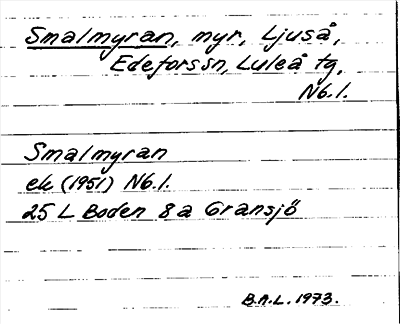 Smalmyran, myr, Ljuså,
Edeforssn, Luleå tg,
Nb.l.
Smalmyran
ek (1951) Nb.l.
25 L Boden 8a Gransjö
B.A.L. 1973.